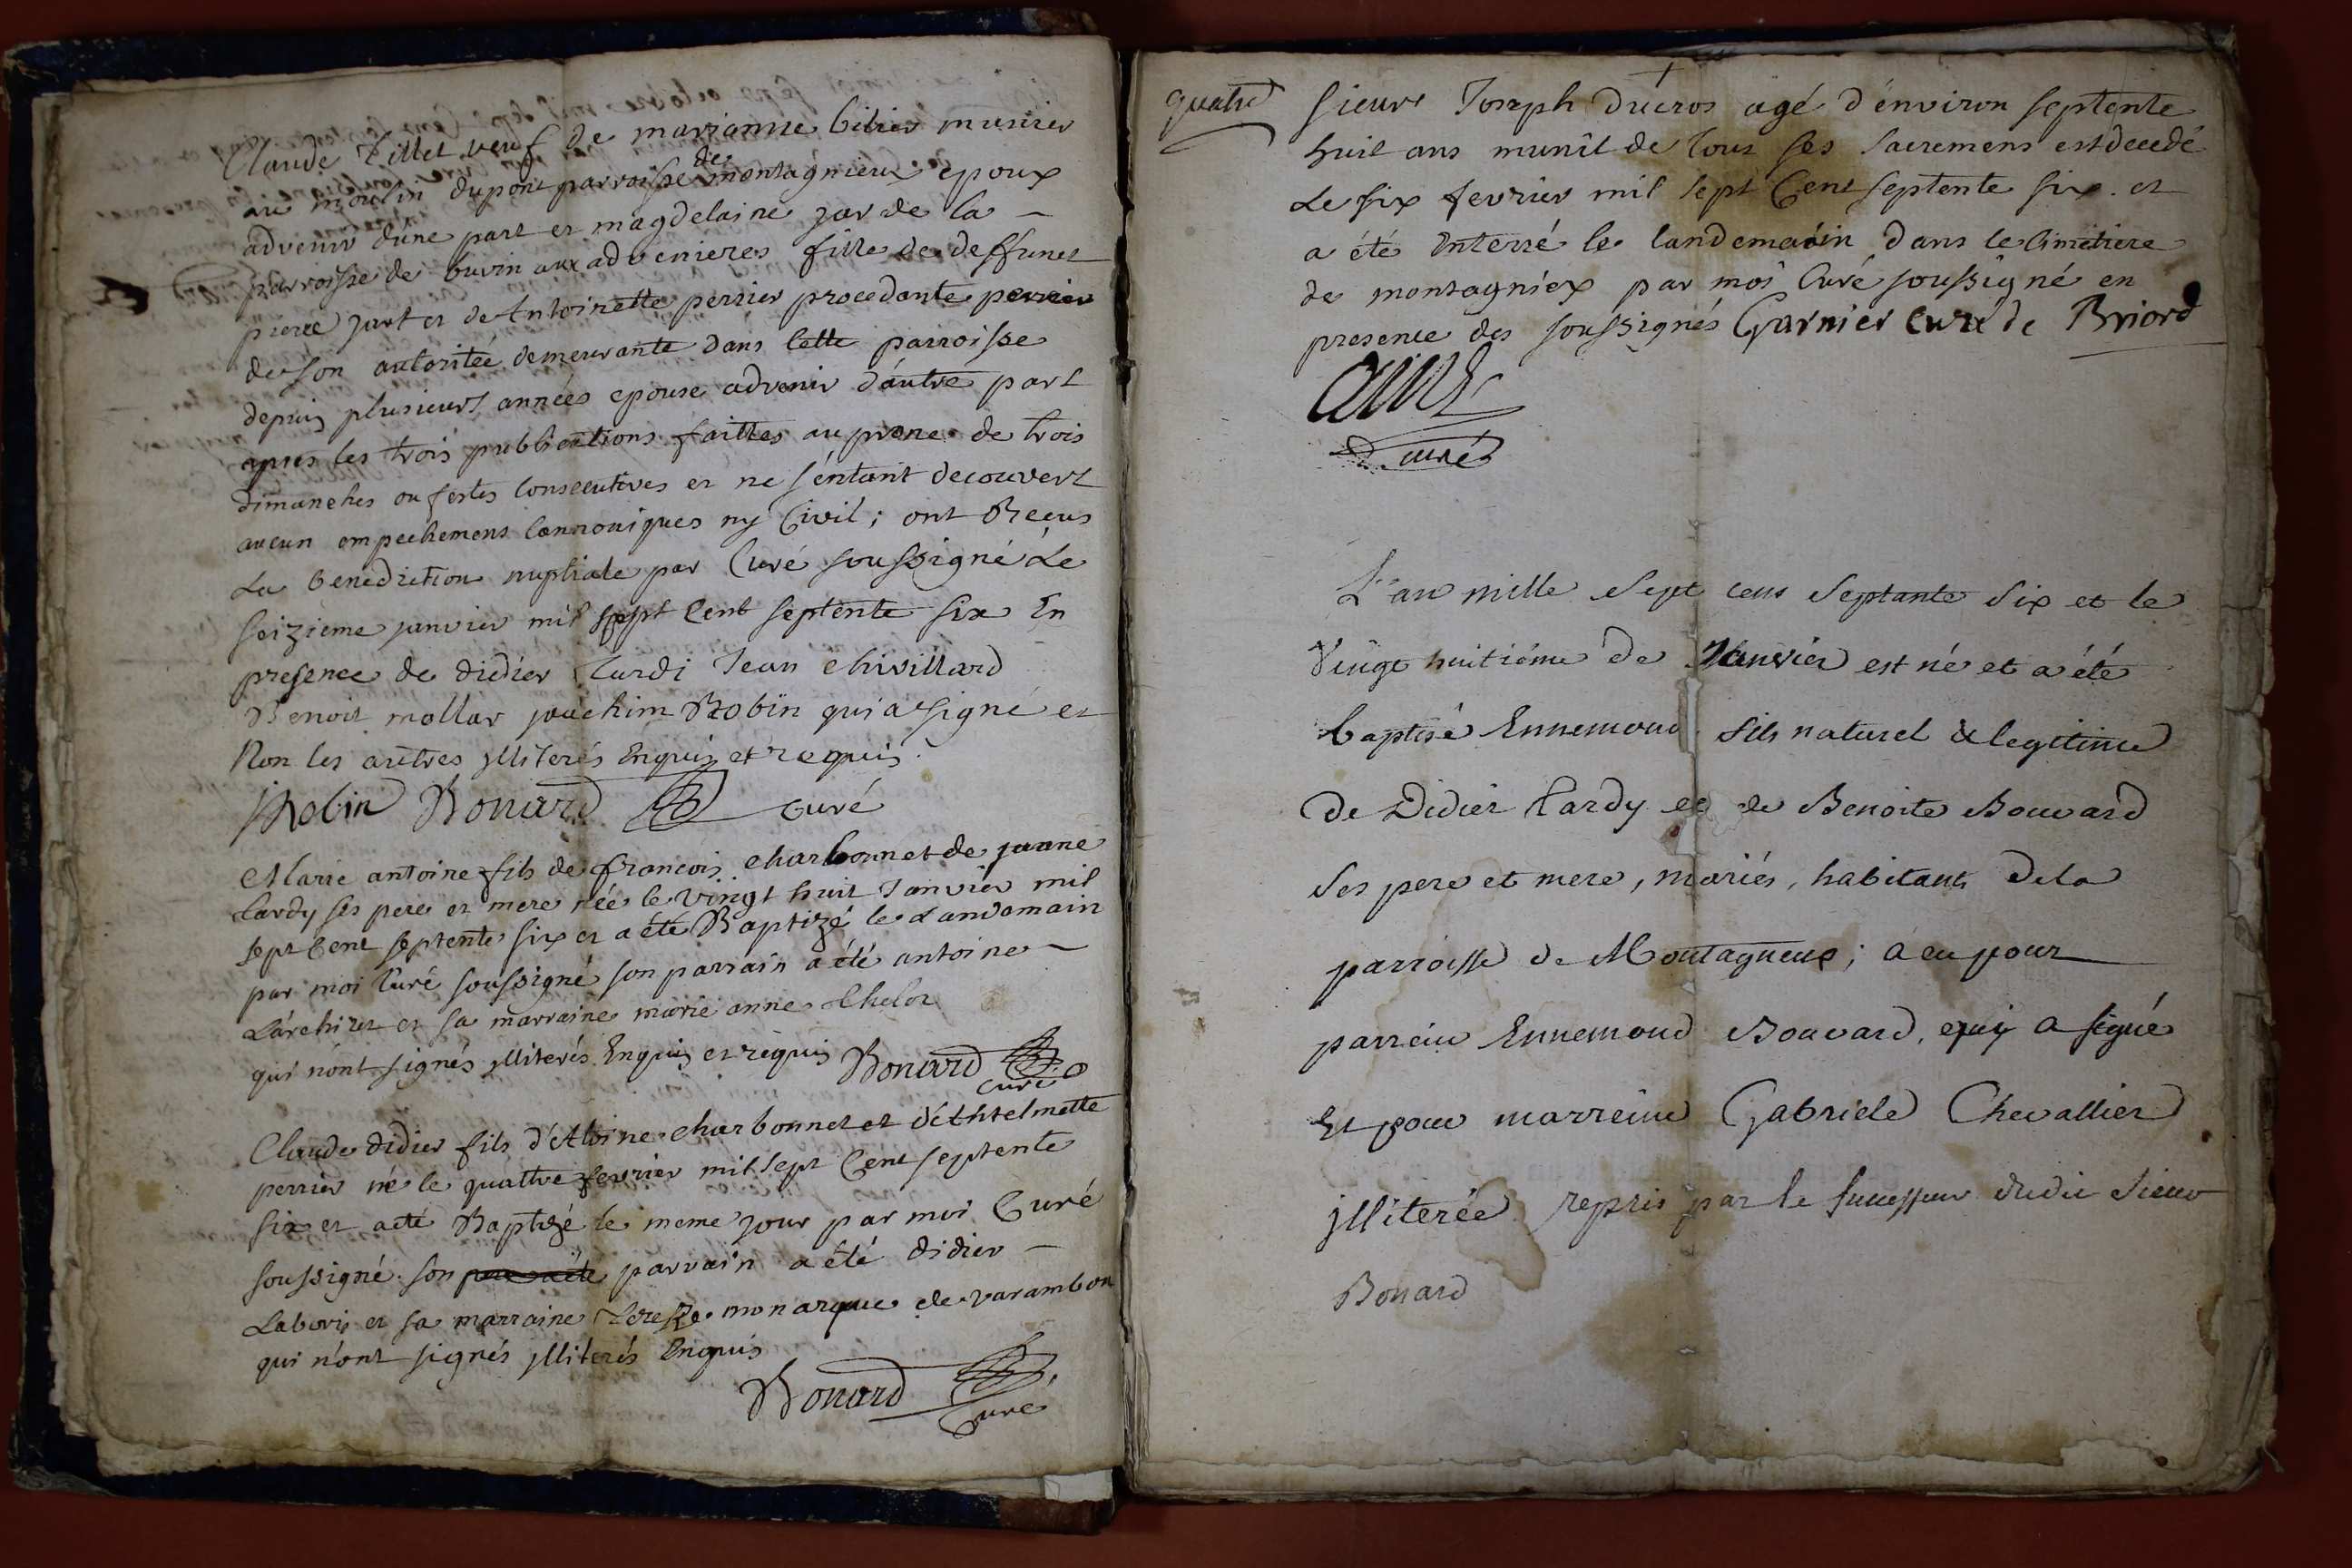 Claude Tillet veuf de marianne bitier munier
au moulin dupont parroisse de montagnieux epoux
advenir dune part et magdelaine jar de la
parroisse de buvin aux advenieres fille de deffunct
pierre jart et de Antoinette perrier procedante perrier
de son autoritée demeurante dans cette parroisse
depuis plusieurs années epouse advenir d'áutre part
apres les trois publications faittes au prone de trois
dimanches ou festes consecutives et ne s'éntant decouvert
aucun empechemens cannoniques ny Civil; ont Reçus
La benediction nuptiale par Curé soussigné Le
seizieme janvier mil sept Cent septente six En
presence de didier tardi Jean chivillard
Benoit mollar joachim Robin qui a signé et
Non les autres jlliterés Enquis et requis
jRobin Bonard curé
Marie antoine fils de francois charbonnet de jeanne
tardy ses pere et mere née le vingt huit Janvier mil
sept Cent septente six et a été Baptizé le Landemain
par moi Curé soussigné son parrain a été antoine
Larchier et sa marraine marie anne thelot
qui n'ont signés jlliterés Enquis et requis Bonard
curé
Claude didier fils d'Atoine charbonnet et d'Anthelmette
perrier né le quattre fevrier mil sept Cent septente
six et a eté Baptizé le meme jour par moi Curé
soussigné son parrain a été didier
Laboris et sa marraine Terese monarque de varambon
qui n'ont signés jlliterés Enquis
Bonard
Curé
quatre
sieur Joseph Ducros agé d'énviron septente
huit ans munit de tous ses sacremens est decedé
Le six fevrier mil sept Cent septente six et
a été Enterré le landemain dans le cimetiere
de montagniex par moi Curé soussigné en
presence des soussignés Garnier curé de Briord
curé
L'an mille sept cens septante six et le
vingt huitiéme de Janvier est né et a été
baptisé Ennemond fils naturel & legitime
de Didier Tardy et de Benoite Bouvard
ses pere et mere, mariés, habitants de la
parroisse de Montagneux; a eu pour
parrein Ennemond Bouvard, quj a signé
Et pour marreine Gabriele Chevallier
jlliterée repris par le successeur dudit sieur
Bonard